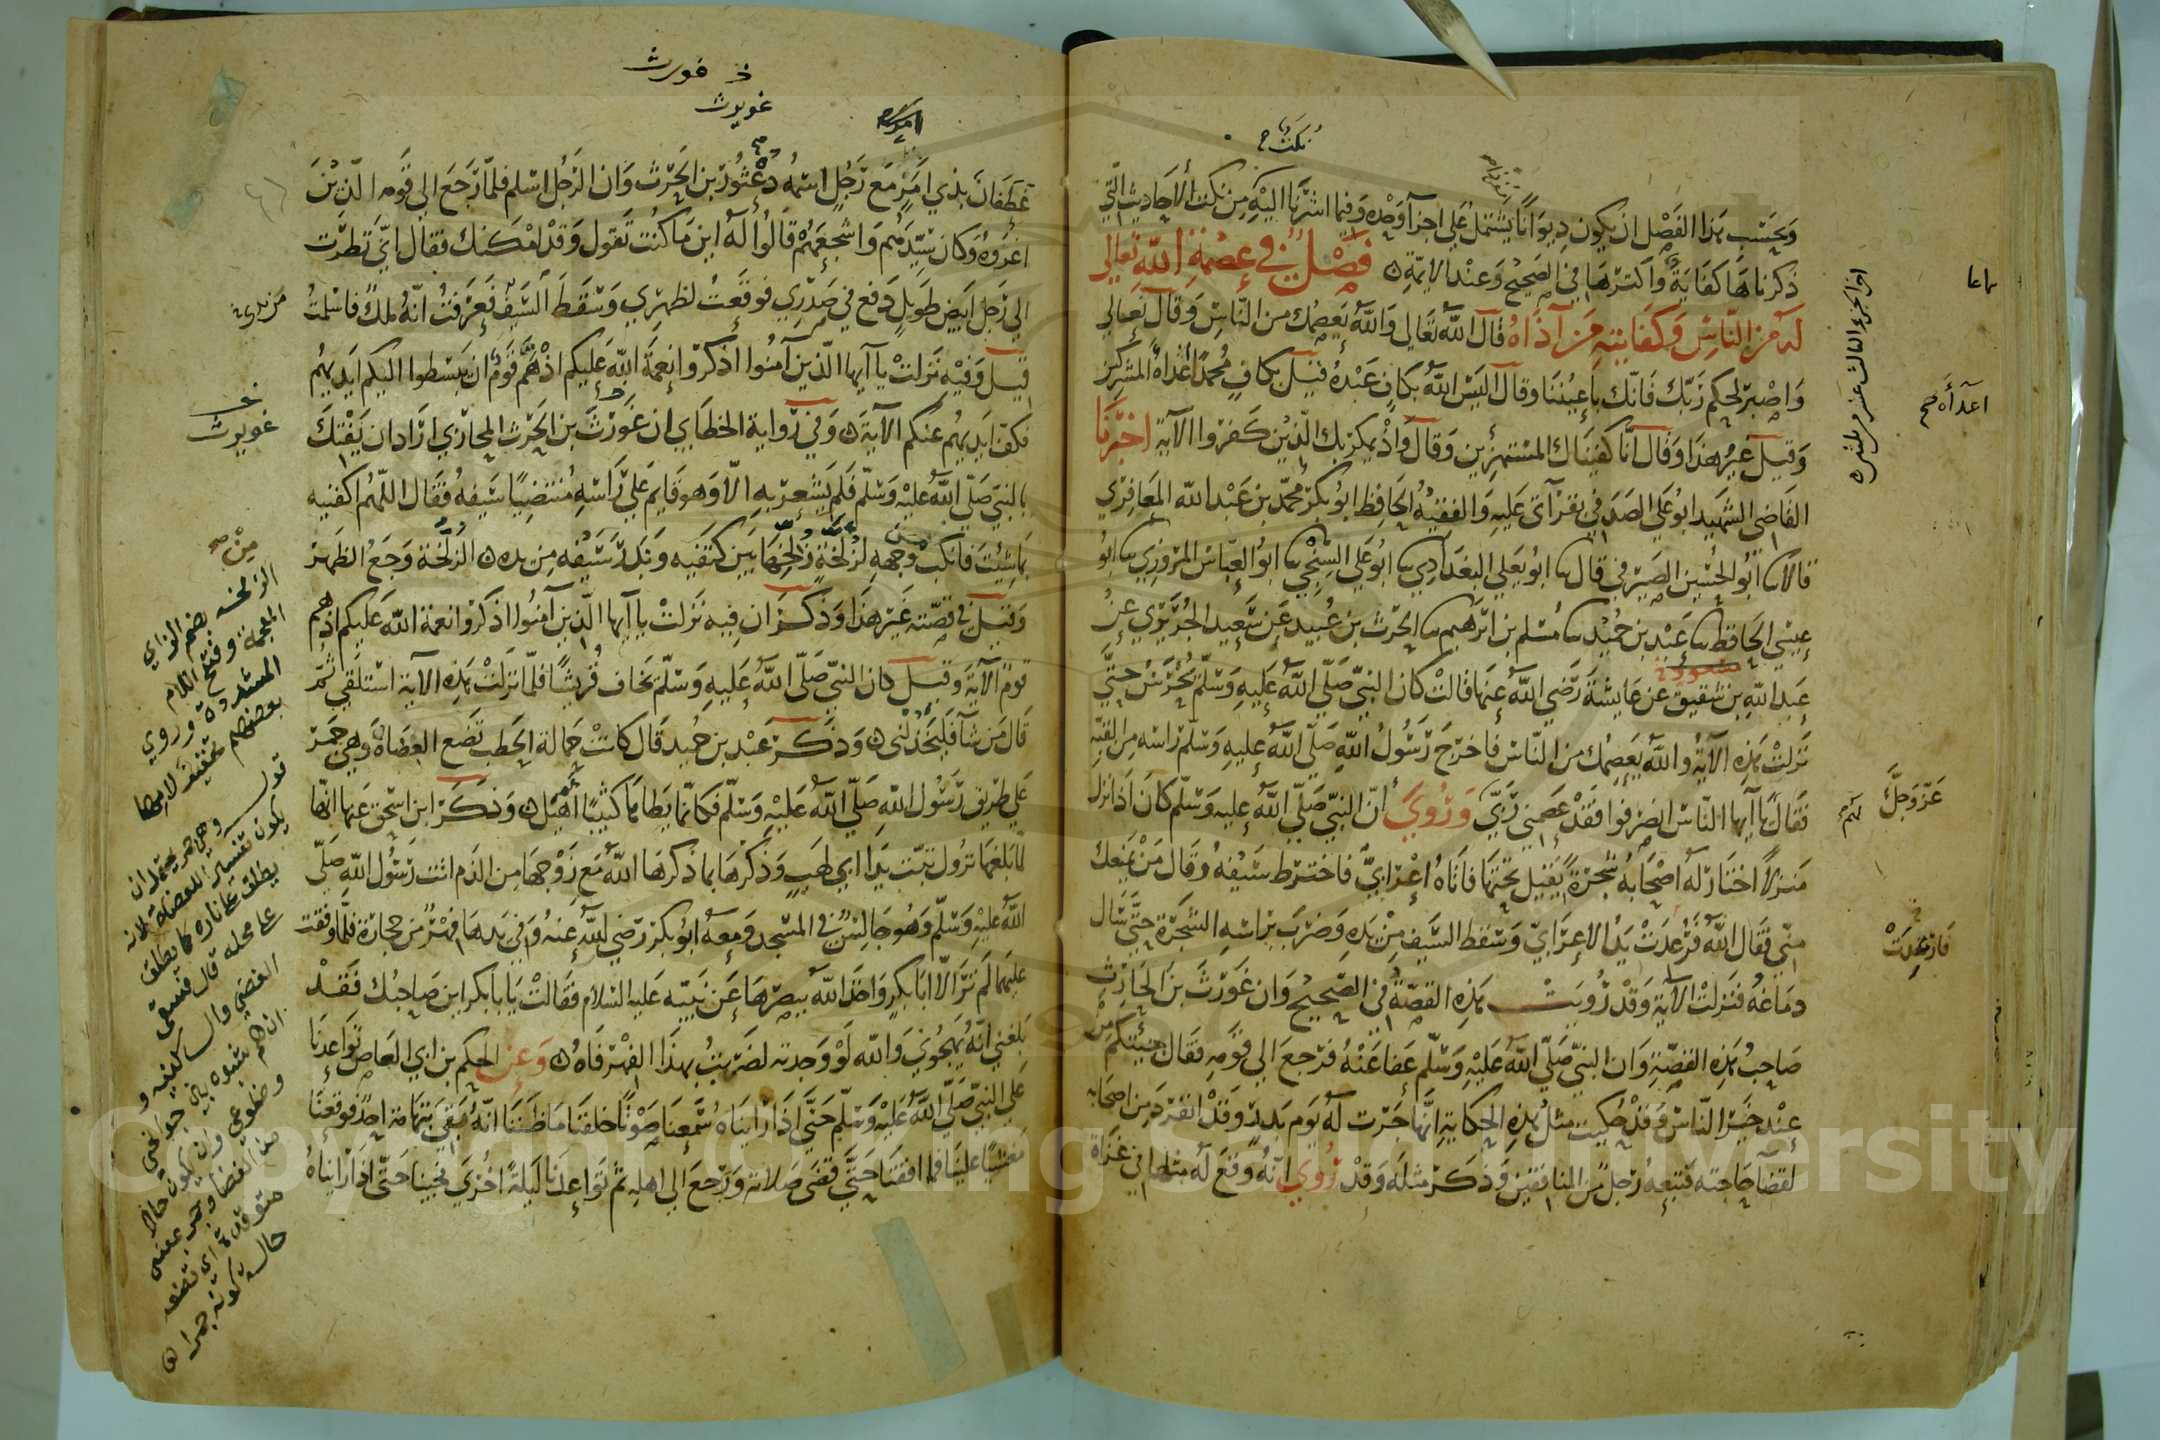 نكت
وبحسب هذا الفصل ان يكون ديوانا يشتمل على اجزاء وحده وفيما اشرنا اليه من نكت الاحاديث التي
ذكرناها كفاية واكثرها في الصحيح وعند الائمة فصل في عصمة الله تعالى
له من الناس وكفايته من آذاه قال الله تعالى والله يعصمك من الناس وقال تعالى
واصبر لحكم ربك فانك باعيننا وقال اليس الله بكاف عبده قيل بكاف محمدا اعداه المشركين
وقيل غير هذا وقال انا كفيناك المستهزئين وقال واذ يمكر بك الذين كفروا الآية اخبرنا
القاضي الشهيد ابو علي الصدفي بقراءتي عليه والفقيه الحافظ ابو بكر محمد بن عبد الله المعافري
قالا نا ابو الحسين الصيرفي قال نا ابو يعلى البغدادي نا ابو علي السنجي نا ابو العباس المروزي نا ابو
عيسى الحافظ نا عبد بن حميد نا مسلم بن ابرهيم نا الحرث بن عبيد عن سعيد الجريري عن
عبد الله بن شقيق عن عايشة رضي الله عنها قالت كان النبي صلى الله عليه وسلم يحرس حتى
نزلت هذه الآية والله يعصمك من الناس فاخرج رسول الله صلى الله عليه وسلم راسه من القبة
فقال يا ايها الناس انصرفوا فقد عصمني ربي وروي ان النبي صلى الله عليه وسلم كان اذا نزل
منزلا اختار له اصحابه شجرة يقيل تحتها فاتاه اعرابي فاخترط سيفه وقال من يمنعك
مني فقال الله فرعدت يد الاعرابي وسقط السيف من يده وضرب براسه الشجرة حتى سال
دماغه فنزلت الآية وقد رويت هذه القصة في الصحيح وان غورث بن الحارث
صاحب هذه القصة وان النبي صلى الله عليه وسلم عفا عنه فرجع الى قومه فقال جيتكم من
عند خير الناس وقد حكيت مثل هذه الحكاية انها جرت له يوم بدر وقد انفرد من اصحابه
لقضاء حاجته فتبعه رجل من المنافقين وذكر مثله وقد روي انه وقع له مثلها في غزاة
اعداه صح
عز وجل
فارعدت
غويرث
غطفان بذي امر مع رجل اسمه دعثور بن الحرث وان الرجل اسلم فلما رجع الى قومه الذين
اغروه وكان سيدهم واشجعهم قالوا له اين ما كنت تقول وقد امكنك فقال اني نظرت
الى رجل ابيض طويل دفع في صدري فوقعت لظهري وسقط السيف فعرفت انه ملك فاسلمت
قيل وفيه نزلت يا ايها الذين آمنوا اذكروا نعمة الله عليكم اذ هم قوم ان يبسطوا اليكم ايديهم
فكف ايديهم عنكم الآية وفي رواية الخطابي ان غورث بن الحرث المحاربي اراد ان يفتك
بالنبي صلى الله عليه وسلم فلم يشعر به الا وهو قايم على راسه منتضيا سيفه فقال اللهم اكفنيه
بما شيت فانكب لوجهه من زلخة زلخها بين كتفيه وندر سيفه من يده الزلخة وجع الظهر
وقيل في قصته غير هذا وذكر ان فيه نزلت يا ايها الذين آمنوا اذكروا نعمة الله عليكم اذ هم
قوم الآية وقيل كان النبي صلى الله عليه وسلم يخاف قريشا فلما نزلت هذه الآية استلقى ثم
قال من شاء فليخذلني وذكر عبد بن حميد قال كانت حمالة الحطب تضع العضاه وهي جمر
على طريق رسول الله صلى الله عليه وسلم فكانما يطاها كثيبا اهيل وذكر ابن اسحق عنها انها
لما بلغها نزول تبت يدا ابي لهب وذكرها بما ذكرها الله مع زوجها من الذم اتت رسول الله صلى
الله عليه وسلم وهو جالس في المسجد ومعه ابو بكر رضي الله عنه وفي يدها فهر من حجارة فلما وقفت
عليهما لم تر الا ابا بكر واخذ الله ببصرها عن نبيه عليه السلام فقالت يا با بكر اين صاحبك فقد
بلغني انه يهجوني والله لو وجدته لضربت بهذا الفهر فاه وعن الحكم بن ابي العاص تواعدنا
على النبي صلى الله عليه وسلم حتى اذا رايناه سمعنا صوتا خلفنا ما ظننا انه بقي بتهامة احد فوقعنا
مغشيا علينا فما افقنا حتى قضى صلاته ورجع الى اهله ثم تواعدنا ليلة اخرى فجينا حتى اذا رايناه
غويرث
من صح
الزلخة بضم الزاي
المعجمة وفتح اللام
المشددة وروي
بعضهم تخفيف لامها
Copyright © King Saud University